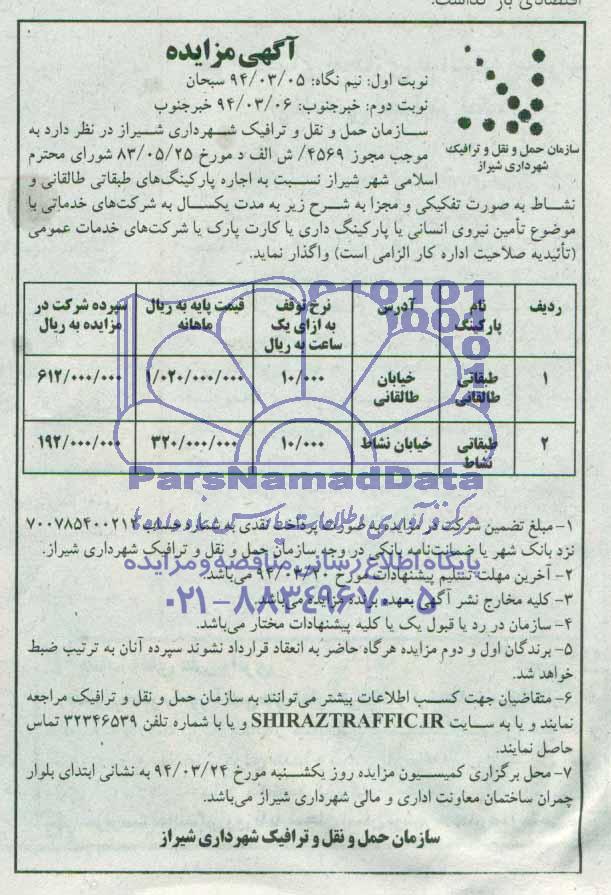 اقتصادی باز گذاشت.
آگهی مزایده
نوبت اول: نیم نگاه: ۹۴/۰۳/۰۵ سبحان
نوبت دوم: خبرجنوب: ۹۴/۰۳/۰۶ خبرجنوب
سازمان حمل و نقل و ترافیک
شهرداری شیراز
سازمان حمل و نقل و ترافیک شهرداری شیراز در نظر دارد به
موجب مجوز ۴۵۶۹/ ش الف د مورخ ۸۳/۰۵/۲۵ شورای محترم
اسلامی شهر شیراز نسبت به اجاره پارکینگ‌های طبقاتی طالقانی و
نشاط به صورت تفکیکی و مجزا به شرح زیر به مدت یکسال به شرکت‌های خدماتی با
موضوع تأمین نیروی انسانی یا پارکینگ داری یا کارت پارک یا شرکت‌های خدمات عمومی
(تأئیدیه صلاحیت اداره کار الزامی است) واگذار نماید.
ردیف | نام پارکینگ | آدرس | نرخ توقف به ازای یک ساعت به ریال | قیمت پایه به ریال ماهانه | سپرده شرکت در مزایده به ریال
۱ | طبقاتی طالقانی | خیابان طالقانی | ۱۰/۰۰۰ | ۱/۰۲۰/۰۰۰/۰۰۰ | ۶۱۲/۰۰۰/۰۰۰
۲ | طبقاتی نشاط | خیابان نشاط | ۱۰/۰۰۰ | ۳۲۰/۰۰۰/۰۰۰ | ۱۹۲/۰۰۰/۰۰۰
ParsNamadData
مرکز فرآوری اطلاعات پارس نماد داده ها
پایگاه اطلاع رسانی مناقصه و مزایده
۰۲۱-۸۸۳۴۹۶۷۰-۵
۱- مبلغ تضمین شرکت در مزایده به صورت پرداخت نقدی به شماره حساب ۷۰۰۷۸۵۴۰۰۲۱۲
نزد بانک شهر یا ضمانت‌نامه بانکی در وجه سازمان حمل و نقل و ترافیک شهرداری شیراز.
۲- آخرین مهلت تسلیم پیشنهادات مورخ ۹۴/۰۳/۲۰ می‌باشد.
۳- کلیه مخارج نشر آگهی بعهده برنده مزایده می‌باشد.
۴- سازمان در رد یا قبول یک یا کلیه پیشنهادات مختار می‌باشد.
۵- برندگان اول و دوم مزایده هرگاه حاضر به انعقاد قرارداد نشوند سپرده آنان به ترتیب ضبط
خواهد شد.
۶- متقاضیان جهت کسب اطلاعات بیشتر می‌توانند به سازمان حمل و نقل و ترافیک مراجعه
نمایند و یا به سایت SHIRAZTRAFFIC.IR و یا با شماره تلفن ۳۲۳۴۶۵۳۹ تماس
حاصل نمایند.
۷- محل برگزاری کمیسیون مزایده روز یکشنبه مورخ ۹۴/۰۳/۲۴ به نشانی ابتدای بلوار
چمران ساختمان معاونت اداری و مالی شهرداری شیراز می‌باشد.
سازمان حمل و نقل و ترافیک شهرداری شیراز